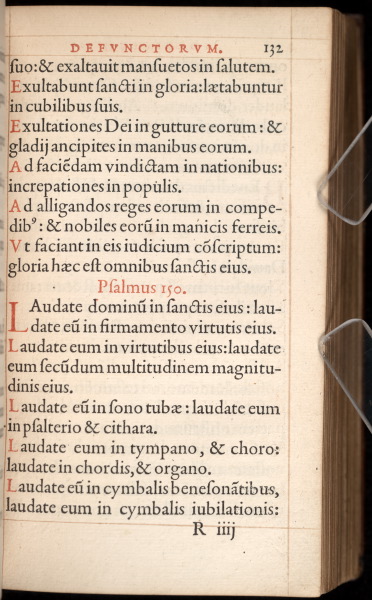 DEFVNCTORVM. 132
ſuo:& exaltauit manſuetos in ſalutem.
Exultabunt ſancti in gloria:lætabuntur
in cubilibus ſuis.
Exultationes Dei in gutture eorum : &
gladij ancipites in manibus eorum.
Ad faciẽdam vindictam in nationibus:
increpationes in populis.
Ad alligandos reges eorum in compe-
dibꝰ: & nobiles eorũ in manicis ferreis.
Vt faciant in eis iudicium cõſcriptum:
gloria hæc eſt omnibus ſanctis eius.
Pſalmus 150.
LAudate dominũ in ſanctis eius : lau-
date eũ in firmamento virtutis eius.
Laudate eum in virtutibus eius:laudate
eum ſecũdum multitudinem magnitu-
dinis eius.
Laudate eũ in ſono tubæ : laudate eum
in pſalterio & cithara.
Laudate eum in tympano, & choro:
laudate in chordis,& organo.
Laudate eũ in cymbalis beneſonãtibus,
laudate eum in cymbalis iubilationis:
R iiij